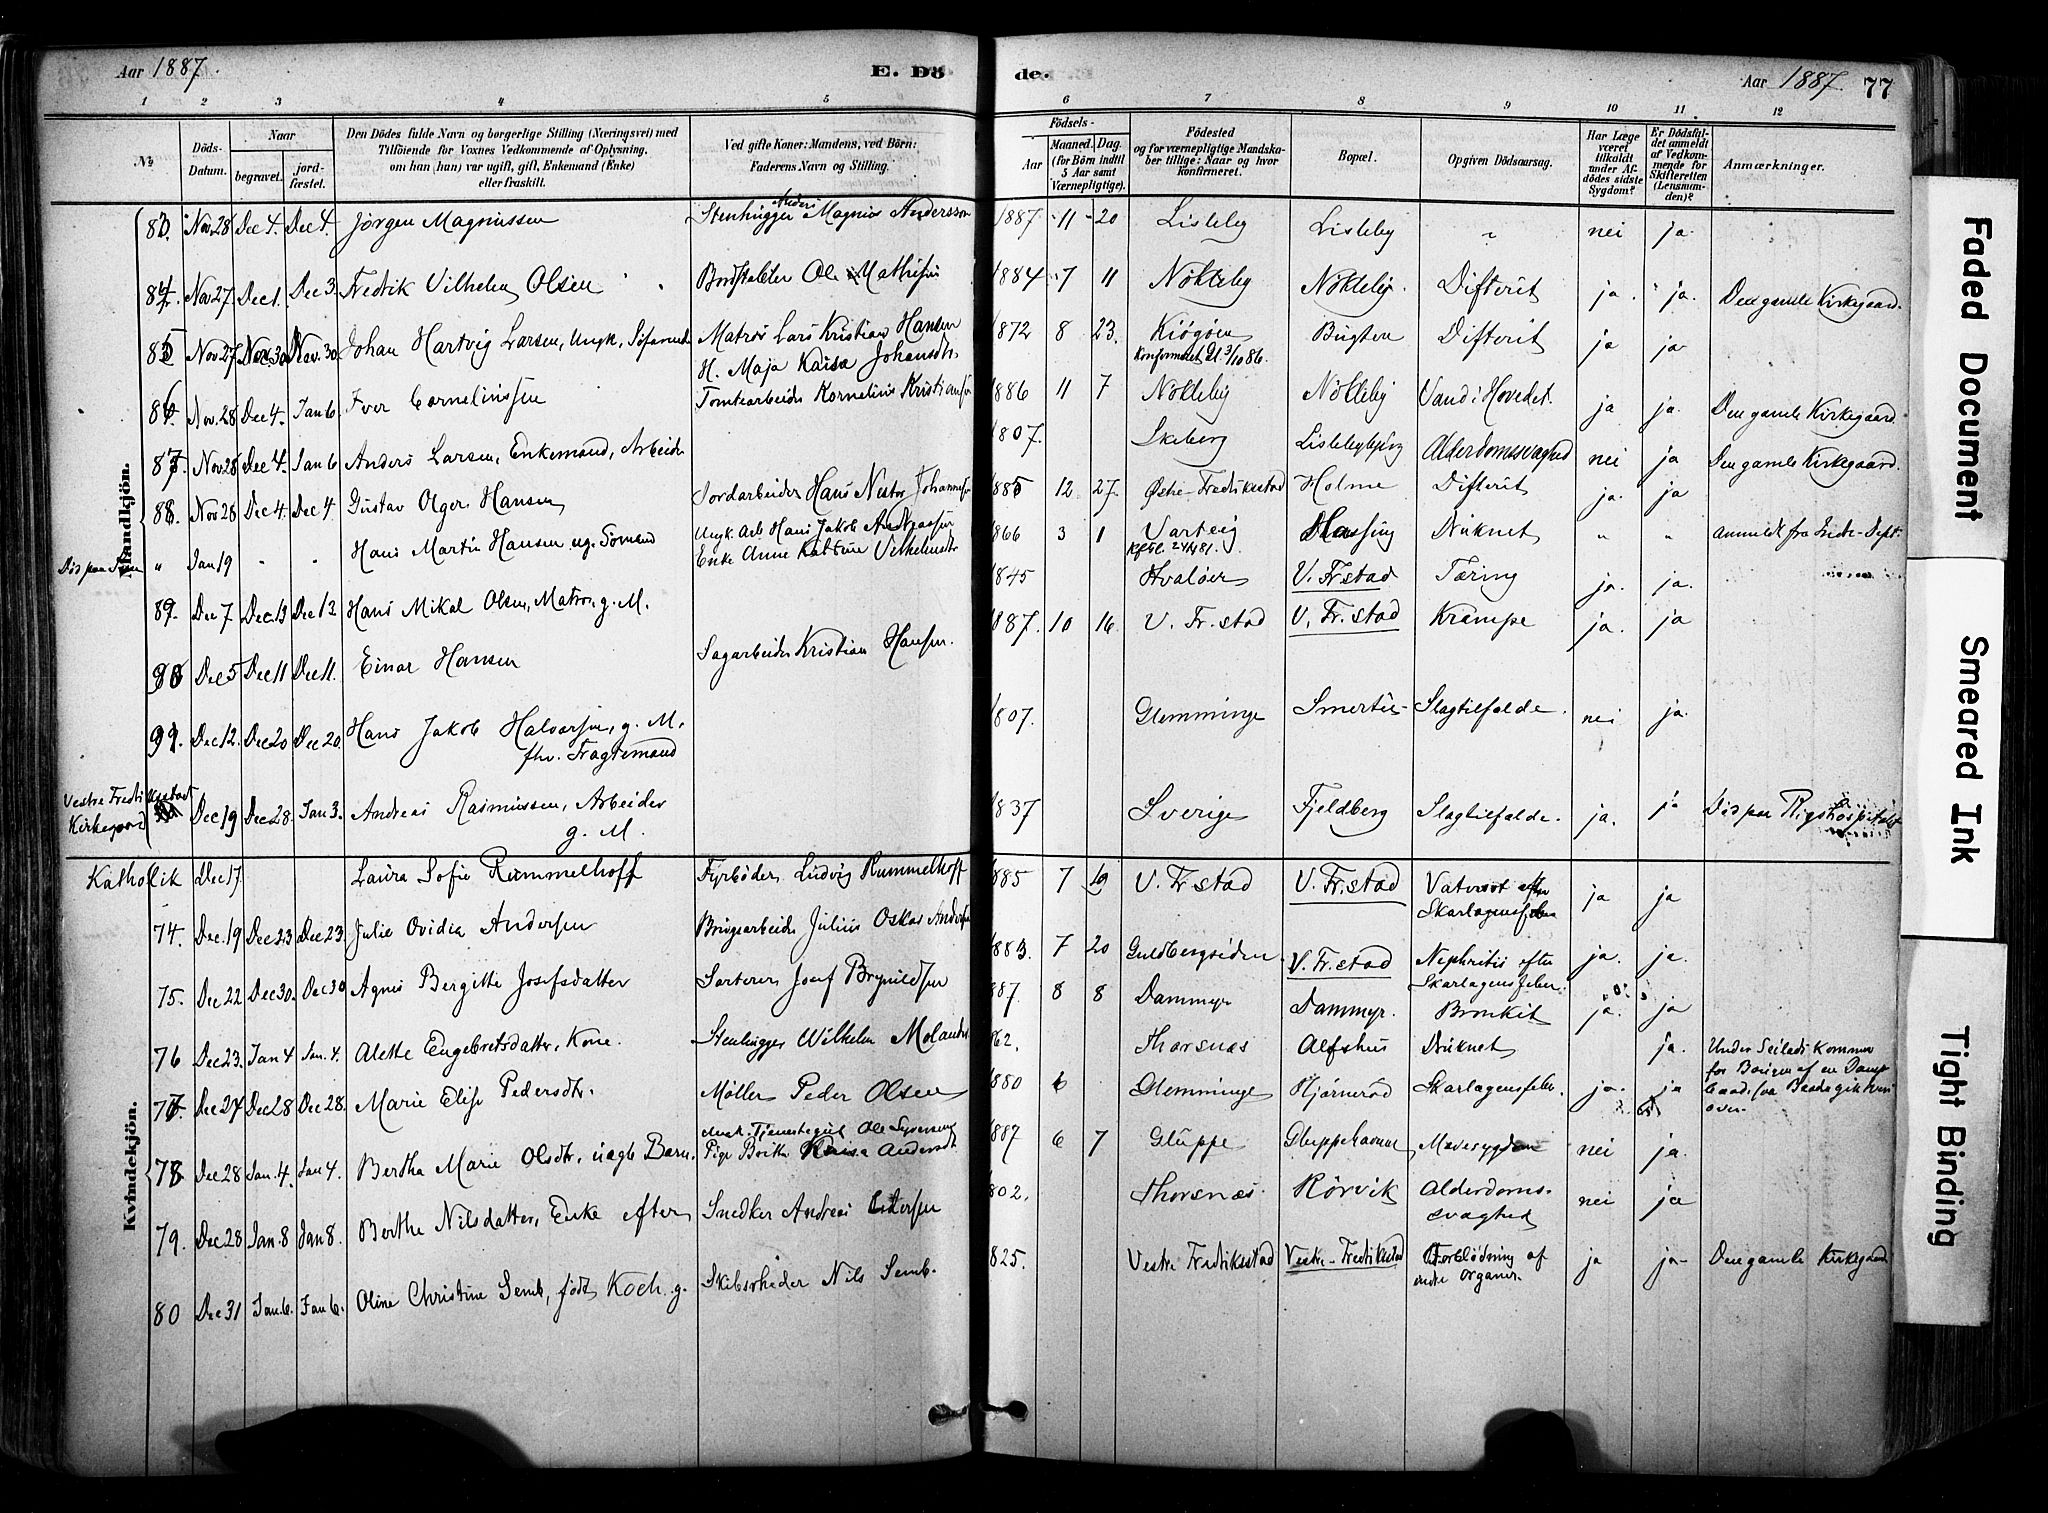 Aar 1887. E. Dö de. Aar 1887. 77
1 2 3 4 5 6 7 8 9 10 11 12
№ Döds-Datum. Naar begravet. jordfæstet. Den Dödes fulde Navn og borgerlige Stilling (Næringsvei) med Tilföiende för Voxnes Vedkommende af Oplysning, om han (hun) var ugift, gift, Enkemand (Enke) eller fraskilt. Ved gifte Koner: Mandens, ved Börn: Faderens Navn og Stilling. Födsels- Aar Maaned. Dag. (for Börn indtil 5 Aar samt Værnepligtige). Födested og for værnepligtige Mandskaber tillige: Naar og hvor konfirmeret. Bopæl. Opgiven Dödsaarsag. Har Læge været tilkaldt under Afdödes sidste Sygdom? Er Dödsfaldet anmeldt af Vedkommende for Skifteretten (Lensmanden)? Anmærkninger.
Mandkjön.
83. Nov. 28 Dec 4. Dec 4. Jörgen Magnussen Stenhugger Anders Magnus Andersson 1887 11 20 Lisleby Lisleby " nei ja.
84. Nov 27 Dec 1. Dec 3. Fredrik Vilhelm Olsen Bordstabler Ole Mathisen 1884 7 11 Nökleby Nökleby. Difterit ja. ja. Den gamle Kirkegaard.
85 Nov 27 Nov. 30 Nov. 30. Johan Hartvig Larsen, Ungk., Söfarende Matros Lars Kristian Hansen H. Maja Kaisa Johansdtr. 1872 8 23. Kiögöen Konfirmeret d. 3/10 86. Bugten Difterit ja ja
86. Nov. 28 Dec 4. Jan 6. Iver Corneliussen Tomtearbeider Kornelius Kristiansen 1886 11 7 Nökleby Nökleby Vand i Hovedet. ja ja. Den gamle Kirkegaard.
87. Nov 28 Dec 4. Jan 6 Anders Larsen, Enkemand, Arbeider 1807. Skeberg Lislebybjerg Alderdomssvaghed nei ja Den gamle Kirkegaard.
88. Nov 28 Dec 4. Dec 4 Gustav Olger Hansen Jordarbeider Hans Nestor Johannesen 1885 12 27. Östre Fredrikstad Holme Difterit ja. ja
" Jan 19 " " Hans Martin Hansen ug. Sömand Ungk. Arb. Hans Jakob Andreassen Enke Anne Katrine Vilhelmsdtr 1866 3 1 Varteig Druknet " " anmeldt fra Indre-Dept.
89. Dec 7 Dec. 13 Dec 13. Hans Mikal Olsen, Matros, g. M. 1845 Hvalöer V. Fr.stad Tæring ja. ja.
90 Dec 5 Dec 11 Dec 11. Einar Hansen Sagarbeider Kristian Hansen. 1887. 10 16 V. Fr.stad V. Fr.stad Krampe ja. ja
91. Dec 12. Dec 20 Dec 20. Hans Jakob Halvorsen, g. M. fhv. Fragtemand 1807. Glemminge Slagtilfælde. nei ja.
Vestre Fredriksstad Kirkegaard Dec 19 Dec 28. Jan 3. Andreas Rasmussen, Arbeider g. M. 1837 Sverige Fjeldberg Slagtilfælde. ja. ja Död paa Rigshospitalet
Kvindekjön.
Katholik Dec 17. Laura Sofie Rummelhoff Fyrböder Ludvig Rummelhoff 1885 7 19 V. Fr.stad V. Fr.stad Vatersot efter Skarlagensfeber ja ja
74. Dec. 19 Dec 23 Dec 23. Julie Ovidia Andersen Brugsarbeider Julius Oskar Andersen 1883. 7 20 Guldbergsiden V. Fr.stad Nephritis efter Skarlagensfeber ja. ja.
75. Dec 22 Dec 30. Dec 30 Agnes Bergitte Josefsdatter Sorterer Josef Brynildsen 1887. 8 8 Dammyr Dammyr. Bronkit ja. ja
76 Dec 23. Jan 4 Jan. 4. Alette Engebretsdatter, Kone. Stenhugger Wilhelm Molander 1862. Thorsnæs Alfshus Druknet ja. Under Seilads kommer for Bougen af en Dampbaad, saa Baadegik over.
77. Dec 27 Dec 28 Dec 28. Marie Elise Pedersdtr. Møller Peder Olsen 1880 6 Glemminge Hjørneröd Skarlagensfeber. ja. ja
78 Dec 28 Jan. 4. Jan 4. Bertha Marie Olsdtr, uægte Barn. Ungk. Tjenestegut Ole Syversen Pige Britha Kaisa Andersdtr 1887 6 7 Gluppe Gluppehavnen Mavesygdom nei ja.
79. Dec. 28 Jan. 8 Jan 8. Berthe Nilsdatter, Enke efter Snedker Andreas Andersen 1802. Thorsnæs. Rörvik Alderdomssvaghed nei ja
80 Dec 31 Jan 6. Jan 6. Oline Christine Semb, født Koch. g. Skibsrheder Nils Semb. 1825. Vestre Fredriksstad Vestre-Fredrikstad Forblödning af indre organer. ja ja Den gamle Kirkegaard
Faded Document
Smeared Ink
Tight Binding